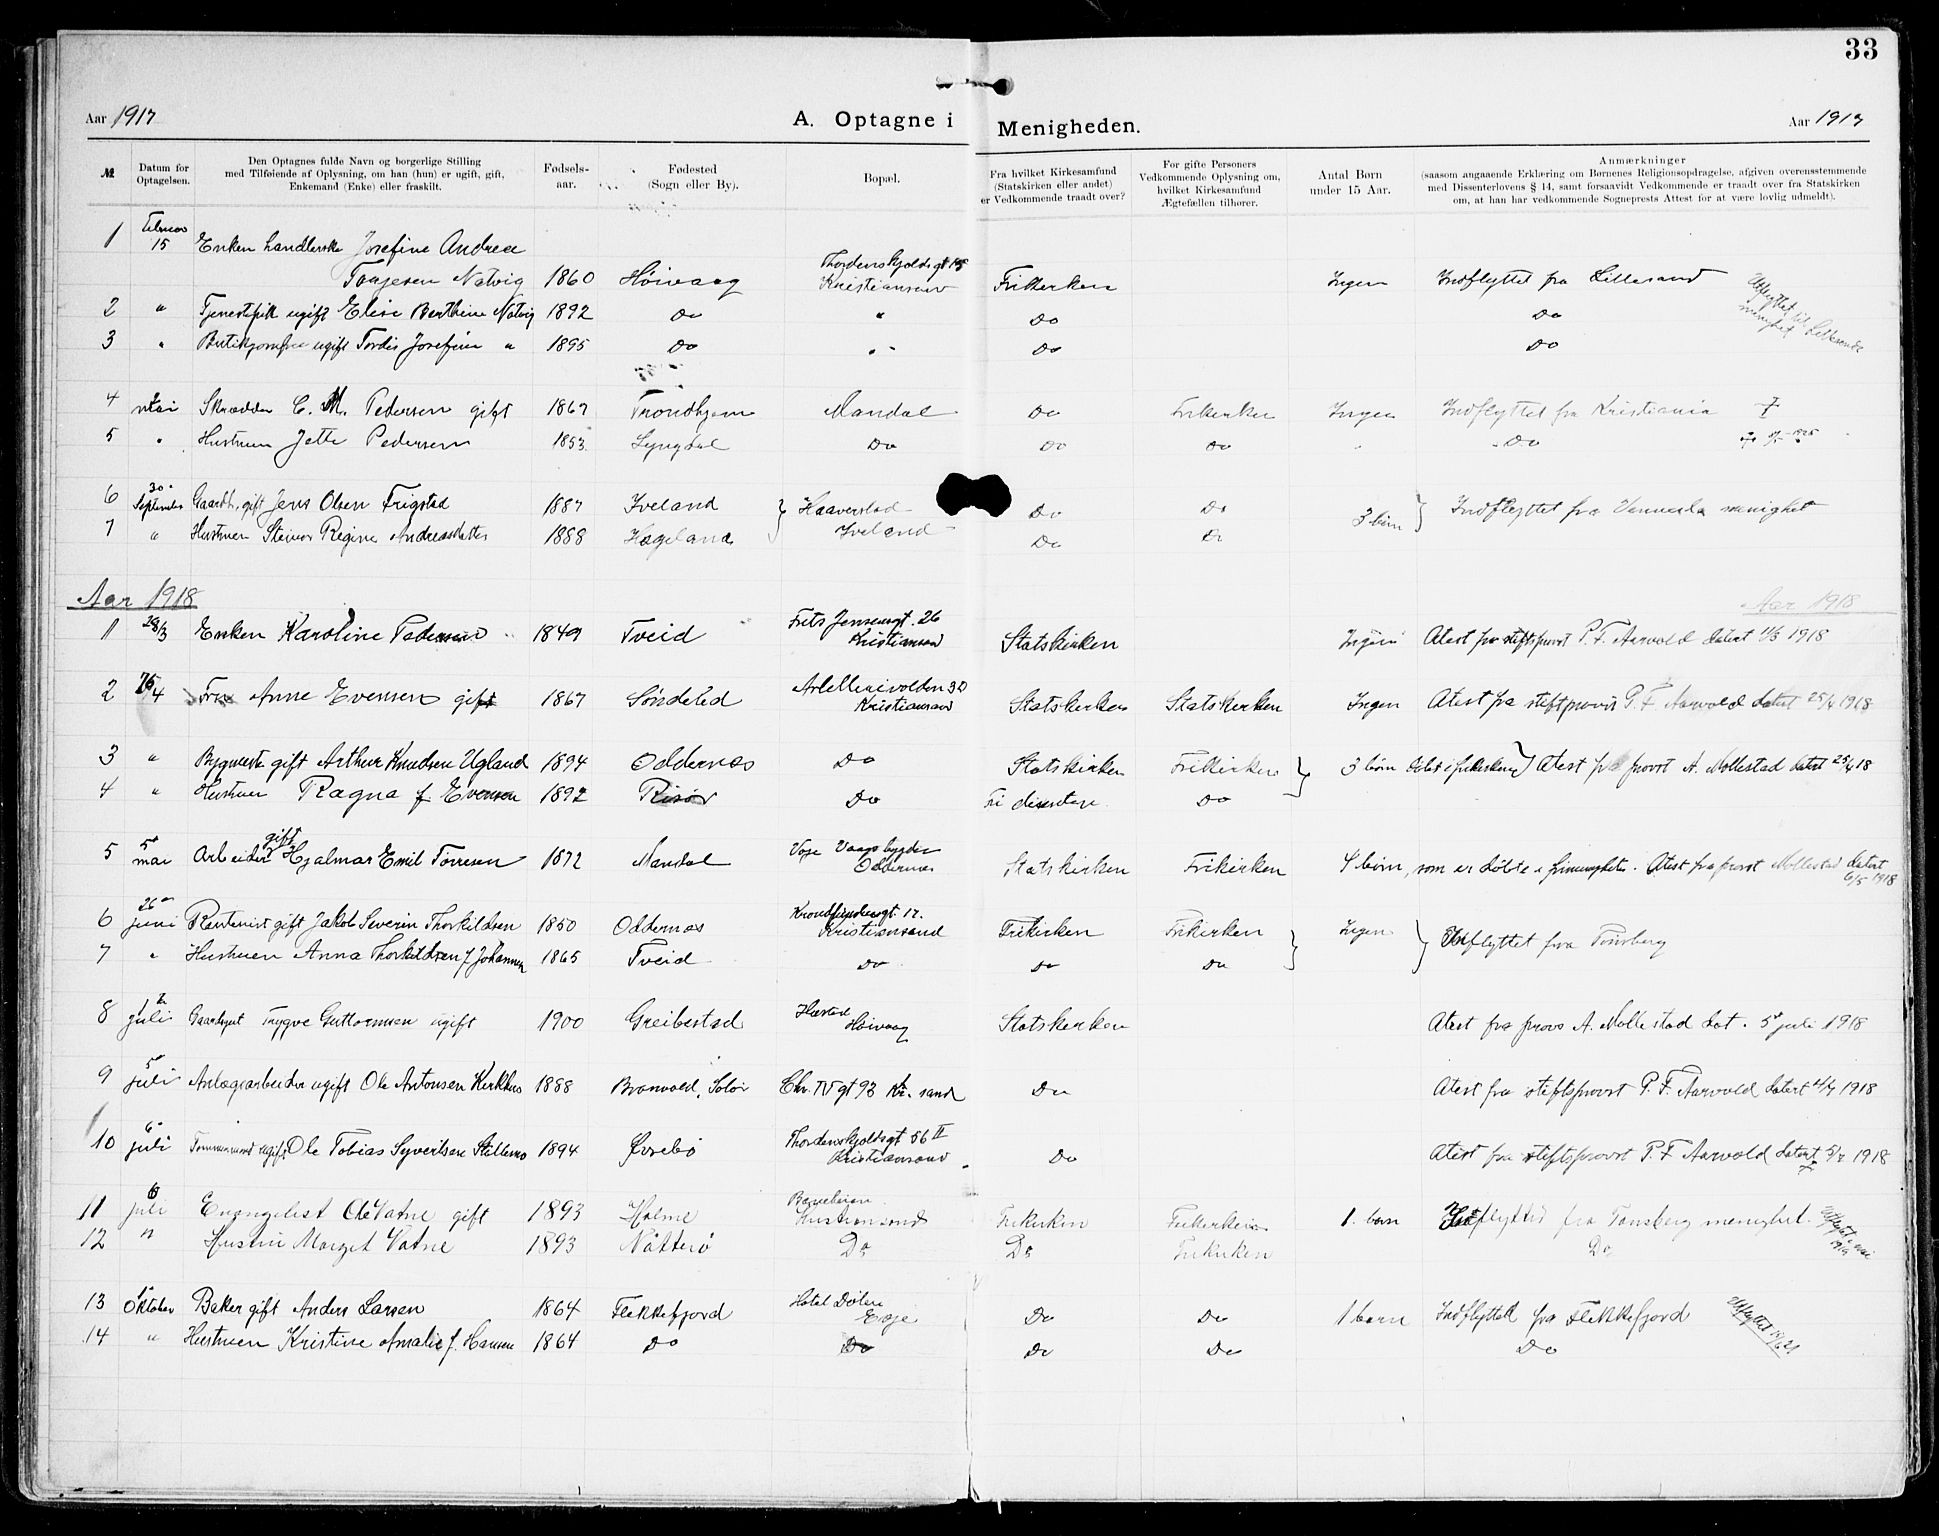 33
Aar 1917 A. Optagne i Menigheden. Aar 1917
№ Datum for Optagelsen. Den Optagnes fulde Navn og borgerlige Stilling med Tilføiende af Oplysning, om han (hun) er ugift, gift, Enkemand (Enke) eller fraskilt. Fødsels-aar. Fødested (Sogn eller By). Bopæl. Fra hvilket Kirkesamfund (Statskirken eller andet) er Vedkommende traadt over? For gifte Personers Vedkommende Oplysning om, hvilket Kirkesamfund Ægtefællen tilhører. Antal Børn under 15 Aar. Anmærkninger (saasom angaaende Erklæring om Børnenes Religionsopdragelse, afgiven overensstemmende med Dissenterlovens § 14, samt forsaavidt Vedkommende er traadt over fra Statskirken om, at han har vedkommende Sogneprests Attest for at være lovlig udmeldt).
1 15 Enken handlerske Josefine Andrea
Taajesen Natvig 1860 Høivaag Thordenskjoldsgt 15 Kristiansand Frikirken Ingen Indflyttet fra Lillesand
2 " ugift Elise Berthine Natvig 1892 Do " Do Do Utflyttet til Lillesands menighet
3 " ugift Tordis Josefine " 1895 Do " Do Do
4 mai Skrædder C. M. Pedersen gift 1867 Trondhjem Mandal Do Frikirken Ingen Indflyttet fra Kristiania †
5 " Hustruen Jette Pedersen 1853 Lyngdal Do Do Do Do
6 30 September Gaardb. gift Jens Olsen Frigstad 1887 Iveland Haaverstad Do Do 3 børn Indflyttet fra Vennesla menighet
7 " Hustruen Steinor Regine Andreasdatter 1888 Hægeland Iveland Do Do
Aar 1918 Aar 1918
1 28/3 Enken Karoline Pedersen 1849 Tveid Frits Jensensgt. 26 Kristiansand Statskirken Ingen Atest fra stiftsprovst P. F. Aarvold datert 11/3 1918
2 Anne Evensen gift 1867 Søndeled 30 Kristiansand Statskirken Statskirken Ingen Atest fra stiftprovst P. F. Aarvold datert 25/4 1918
3 " Bygmester gift Arthur Knudsen Ugland 1894 Oddernes Do Statskirken Frikirken 3 børn døbt i frikirken Atest fra provst A. Mollestad datert 25/4 18
4 " Hustruen Ragna f Evensen 1892 Risør Do Fri Do
5 5 mai Arbeider gift Hjalmar Emil Tørresen 1872 Mandal Vaagsbygden Oddernes Statskirken Frikirken 4 børn, som er døbte i frimenigheten. Atest fra provst Mollestad datert 6/5 1918
6 26 juni Rentenist gift Jakob Severin Thorkildsen 1850 Oddernes Kronprinsensgt. 17. Kristiansand Frikirken Frikirken Ingen Indflyttet fra Tønsberg
7 " Hustruen Anna Thorkildsen f Johannesen 1865 Tveid Do Do Do
8 2 juli Gaardsgut Trygve Guttormsen ugift 1900 Greibestad Høivaag Statskirken Atest fra provs A. Mollestad dat. 5 juli 1918
9 5 juli Anlægsarbeider ugift Ole Antonsen Kirkhus 1888 Branvold, Solør Chr. IV gt 93 Kr. sand Do Atest fra stiftsprovst P. F. Aarvold datert 4/7 1918
10 6 juli Tømmermand ugift Ole Tobias Syvertsen Stillemo 1894 Øvrebø Thordenskjoldsgt 56 II Kristiansand Do Atest fra stiftsprovst P. F. Aarvold datert 5/7 1918
11 6 juli Evangelist Ole Vatne gift 1893 Holme Baneheien Kristiansand Frikirken Frikirken 1. barn Indflyttet fra Tønsberg menighet. Utflyttet mai 1919
12 " Hustru Marget Vatne 1893 Nøtterø Do Do Frikirken Do
13 1 Oktober Baker gift Anders Larsen 1864 Flekkefjord Hotel Dølen Evje Do Do 1 barn Indflyttet fra Flekkefjord Utflyttet
14 " Hustruen Kristine Amalie f. Hansen 1864 Do Do Do Do Do